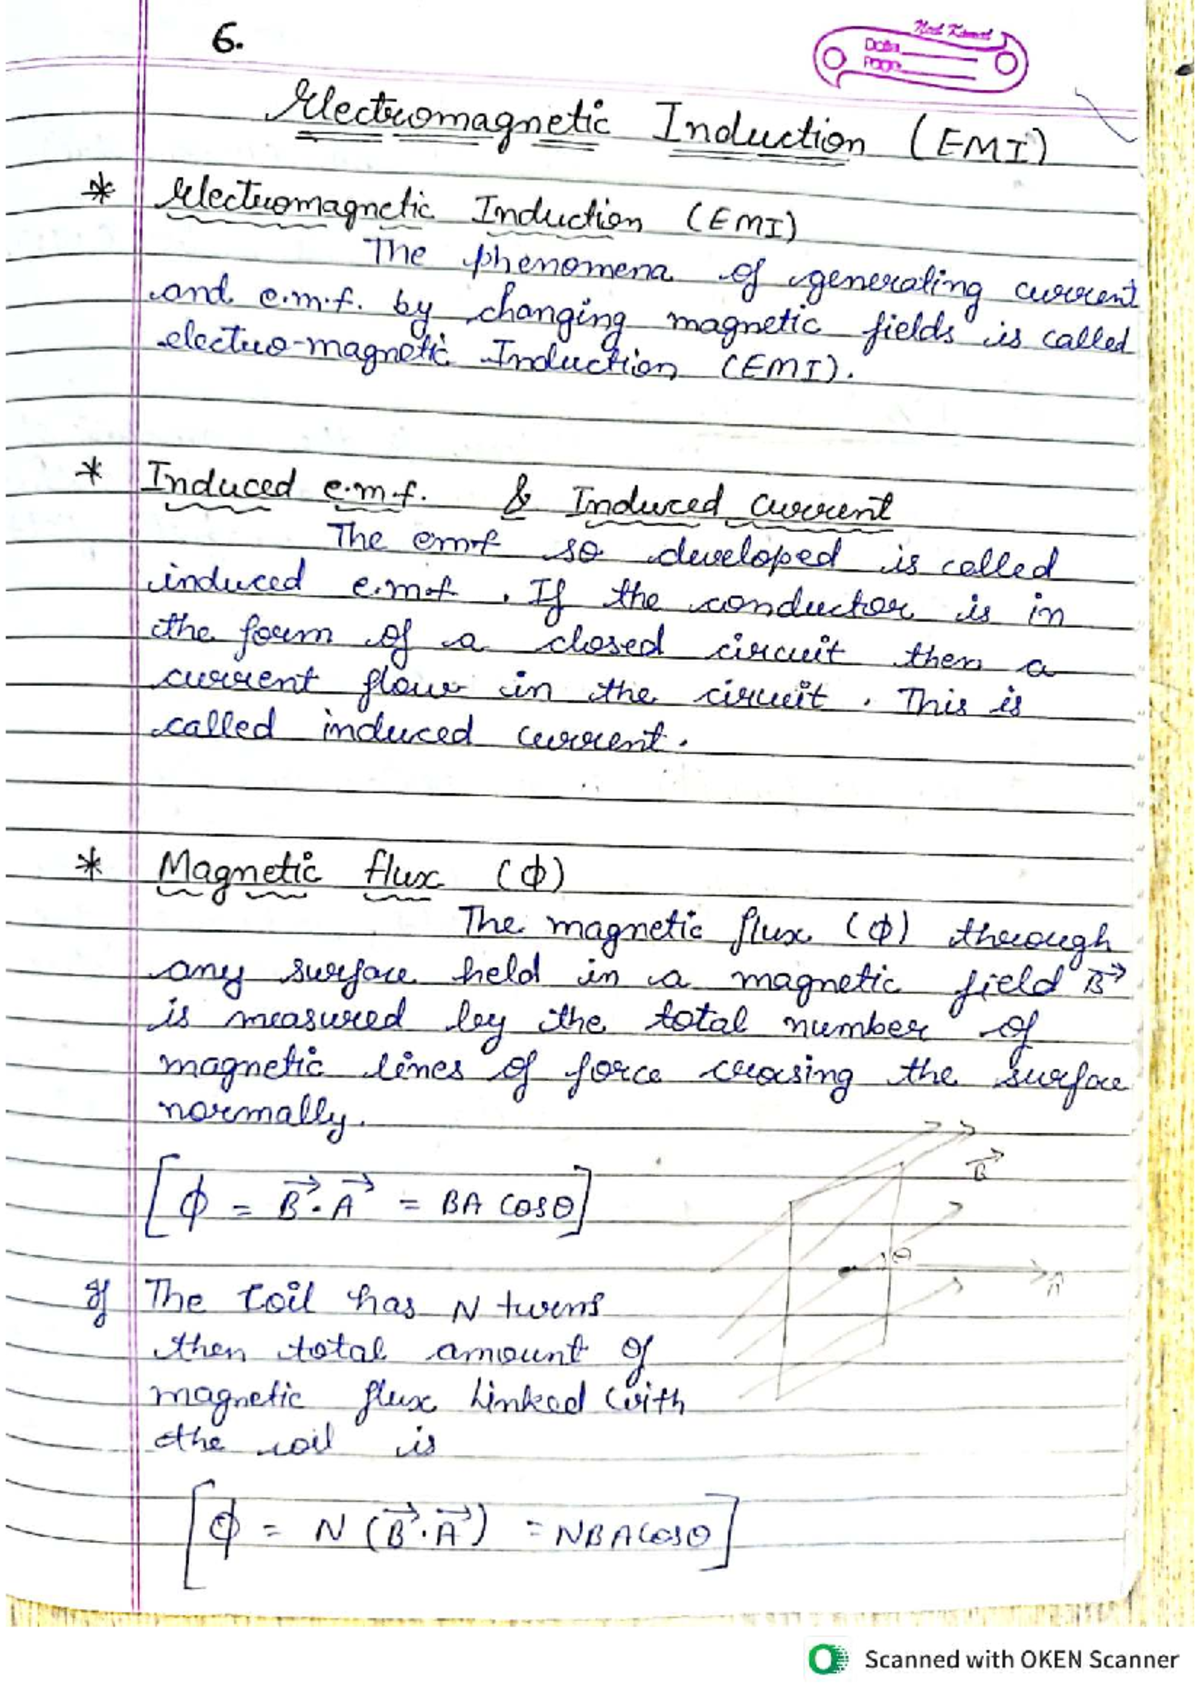 6.
Neel Kamal
Date
Page
Electromagnetic Induction (EMI)
* Electromagnetic Induction (EMI)
The phenomena of generating current
and e.m.f. by changing magnetic fields is called
electro-magnetic Induction (EMI).
* Induced e.m.f. & Induced Current
The emf so developed is called
induced e.m.f. If the conductor is in
the form of a closed circuit then a
current flow in the circuit. This is
called induced current.
* Magnetic flux (ϕ)
The magnetic flux (ϕ) through
any surface held in a magnetic field B⃗
is measured by the total number of
magnetic lines of force crossing the surface
normally.
B⃗
[ϕ = B⃗·A⃗ = BA cosθ]
θ
If The Coil has N turns
then total amount of
magnetic flux linked with
the coil is
[ϕ = N (B⃗·A⃗) = NBA cosθ]
Scanned with OKEN Scanner